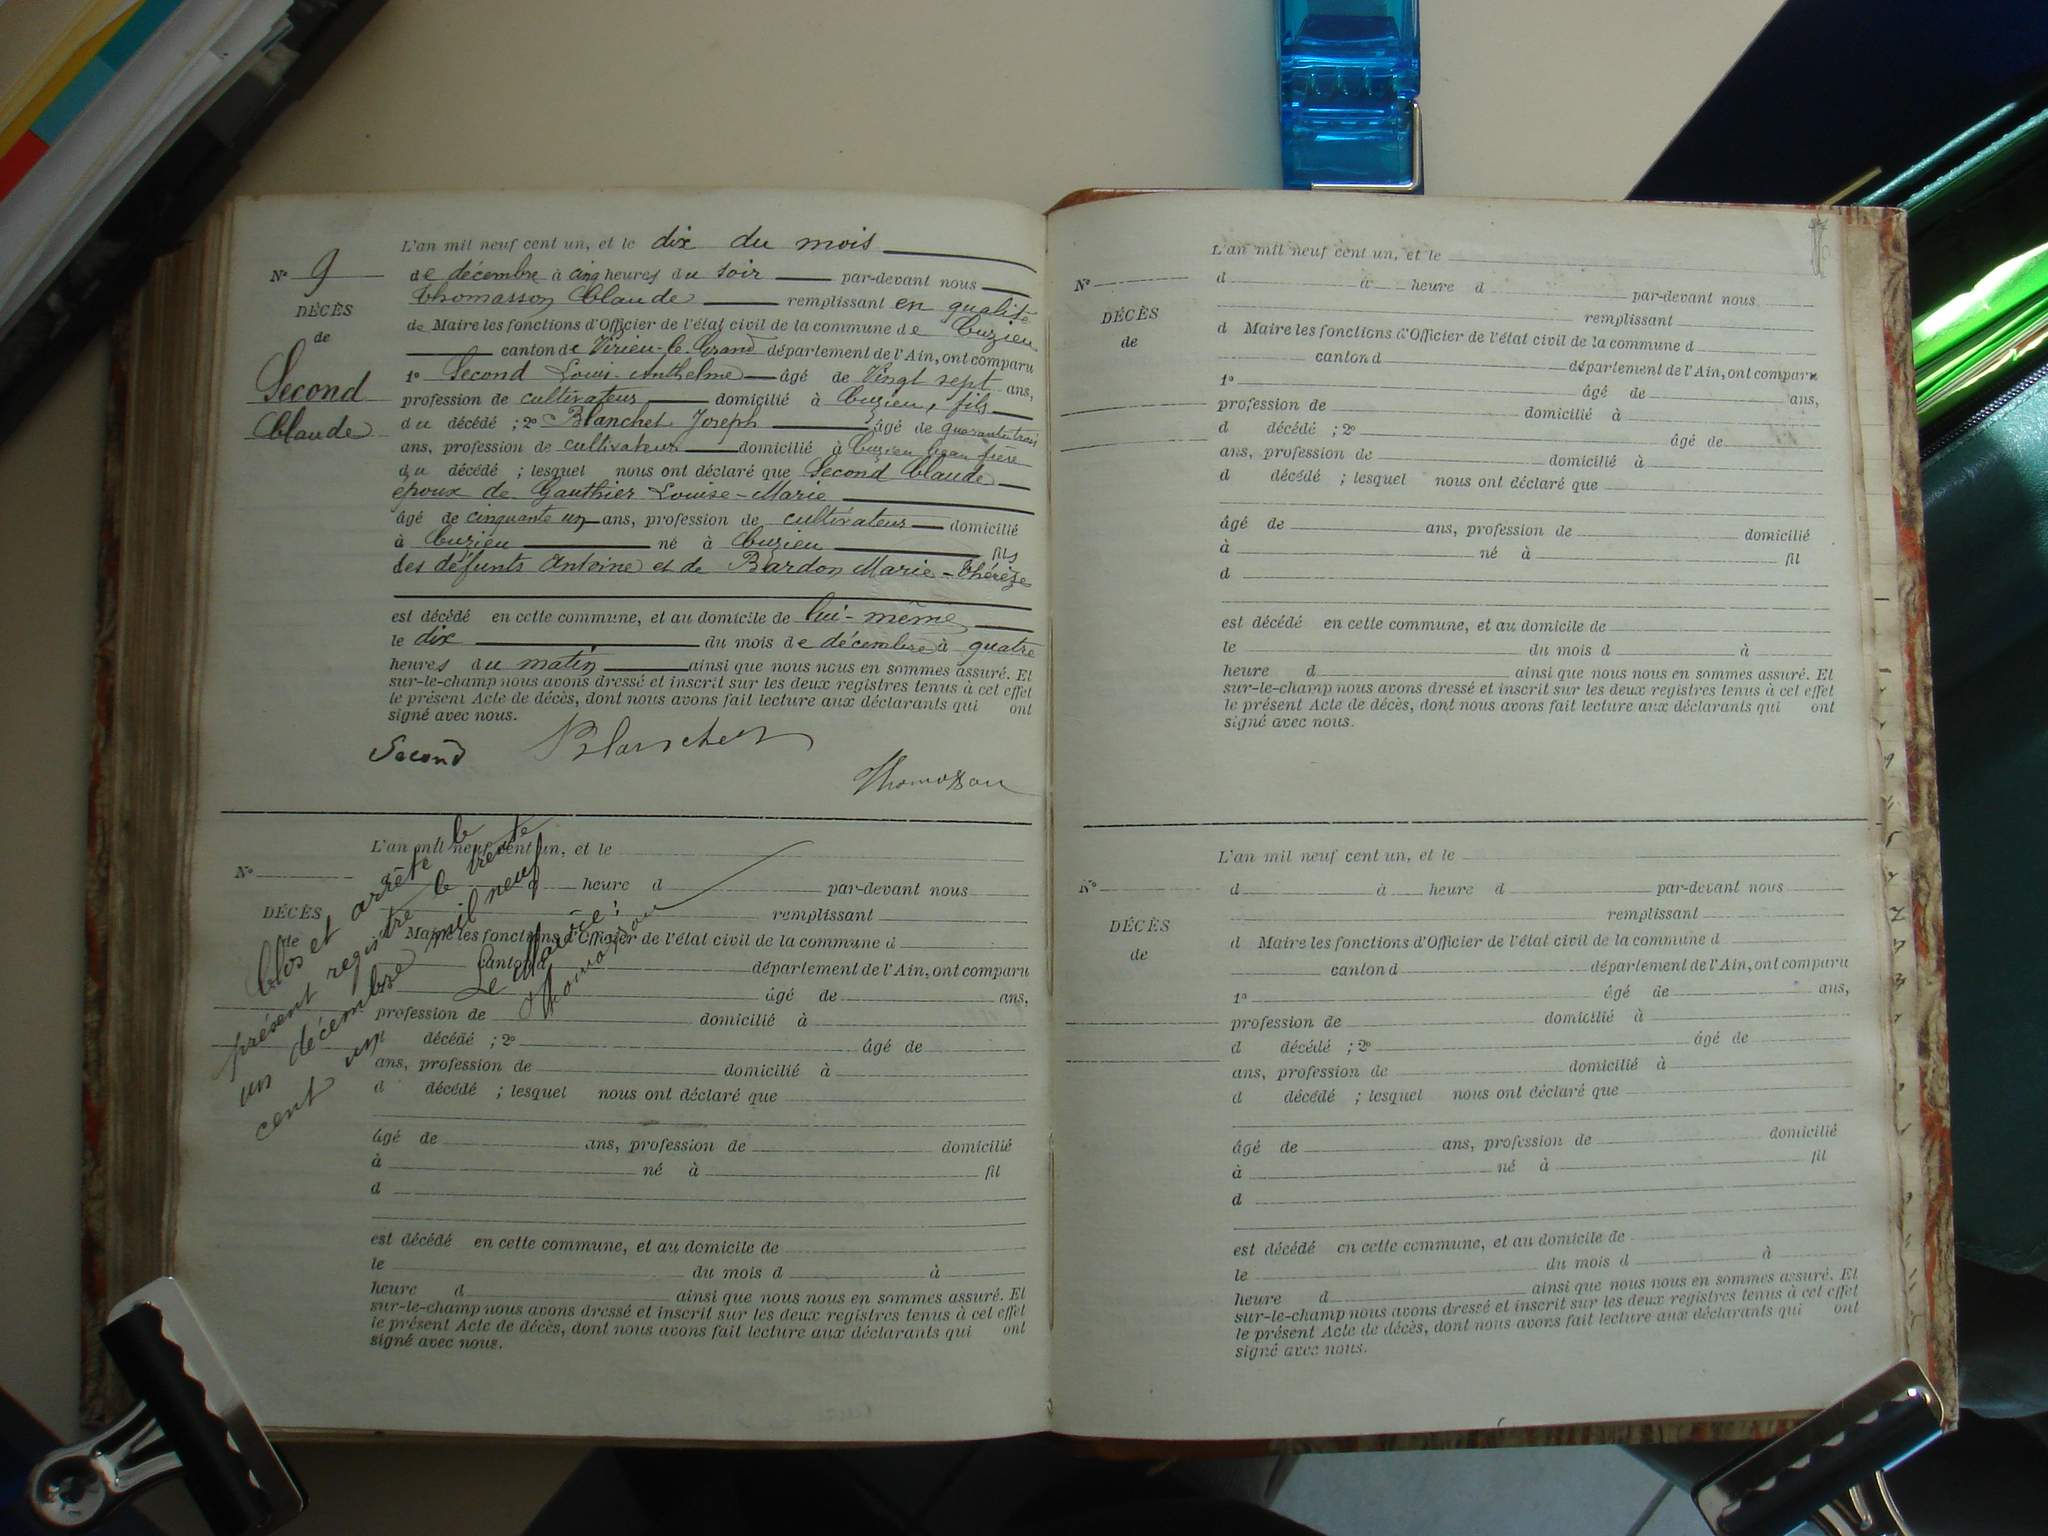 L'an mil neuf cent un, et le dix du mois
N° 9
de décembre à cinq heures du soir par-devant nous
Thomasson Claude remplissant en qualité
DÉCÈS
de
Second
Claude
de Maire les fonctions d'Officier de l'état civil de la commune de Cuzieu
canton de Virieu-le-Grand département de l'Ain, ont comparu
1° Second Louis-Anthelme âgé de Vingt sept ans,
profession de cultivateur domicilié à Cuzieu, fils
du décédé ; 2° Blanchet Joseph âgé de quarante trois
ans, profession de cultivateur domicilié à Cuzieu beau frère
du décédé ; lesquel nous ont déclaré que Second Claude
époux de Gauthier Louise-Marie
âgé de cinquante un ans, profession de cultivateur domicilié
à Cuzieu né à Cuzieu fils
des défunts Antoine et de Bardon Marie-Thérèze
est décédé en cette commune, et au domicile de lui-même
le dix du mois de décembre à quatre
heures du matin ainsi que nous nous en sommes assuré. Et
sur-le-champ nous avons dressé et inscrit sur les deux registres tenus à cet effet
le présent Acte de décès, dont nous avons fait lecture aux déclarants qui ont
signé avec nous.
Second Blanchet
Thomasson
L'an mil neuf cent un, et le
N°
à heure d par-devant nous
DÉCÈS
de
remplissant
Maire les fonctions d'Officier de l'état civil de la commune d
canton d département de l'Ain, ont comparu
âgé de ans,
profession de domicilié à
décédé ; 2° âgé de
ans, profession de domicilié à
d décédé ; lesquel nous ont déclaré que
âgé de ans, profession de domicilié
à né à fil
d
est décédé en cette commune, et au domicile de
le du mois d à
heure d ainsi que nous nous en sommes assuré. Et
sur-le-champ nous avons dressé et inscrit sur les deux registres tenus à cet effet
le présent Acte de décès, dont nous avons fait lecture aux déclarants qui ont
signé avec nous.
Clos et arrêté le
présent registre le trente
un décembre mil neuf
cent un
Le Maire :
Thomasson
L'an mil neuf cent un, et le
N°
d à heure d par-devant nous
remplissant
DÉCÈS
de
d Maire les fonctions d'Officier de l'état civil de la commune d
canton d département de l'Ain, ont comparu
1° âgé de ans,
profession de domicilié à
d décédé ; 2° âgé de
ans, profession de domicilié à
d décédé ; lesquel nous ont déclaré que
âgé de ans, profession de domicilié
à né à fil
d
est décédé en cette commune, et au domicile de
le du mois d à
heure d ainsi que nous nous en sommes assuré. Et
sur-le-champ nous avons dressé et inscrit sur les deux registres tenus à cet effet
le présent Acte de décès, dont nous avons fait lecture aux déclarants qui ont
signé avec nous.
L'an mil neuf cent un, et le
N°
d à heure d par-devant nous
remplissant
DÉCÈS
de
d Maire les fonctions d'Officier de l'état civil de la commune d
canton d département de l'Ain, ont comparu
1° âgé de ans,
profession de domicilié à
d décédé ; 2° âgé de
ans, profession de domicilié à
d décédé ; lesquel nous ont déclaré que
âgé de ans, profession de domicilié
à né à fil
d
est décédé en cette commune, et au domicile de
le du mois d à
heure d ainsi que nous nous en sommes assuré. Et
sur-le-champ nous avons dressé et inscrit sur les deux registres tenus à cet effet
le présent Acte de décès, dont nous avons fait lecture aux déclarants qui ont
signé avec nous.